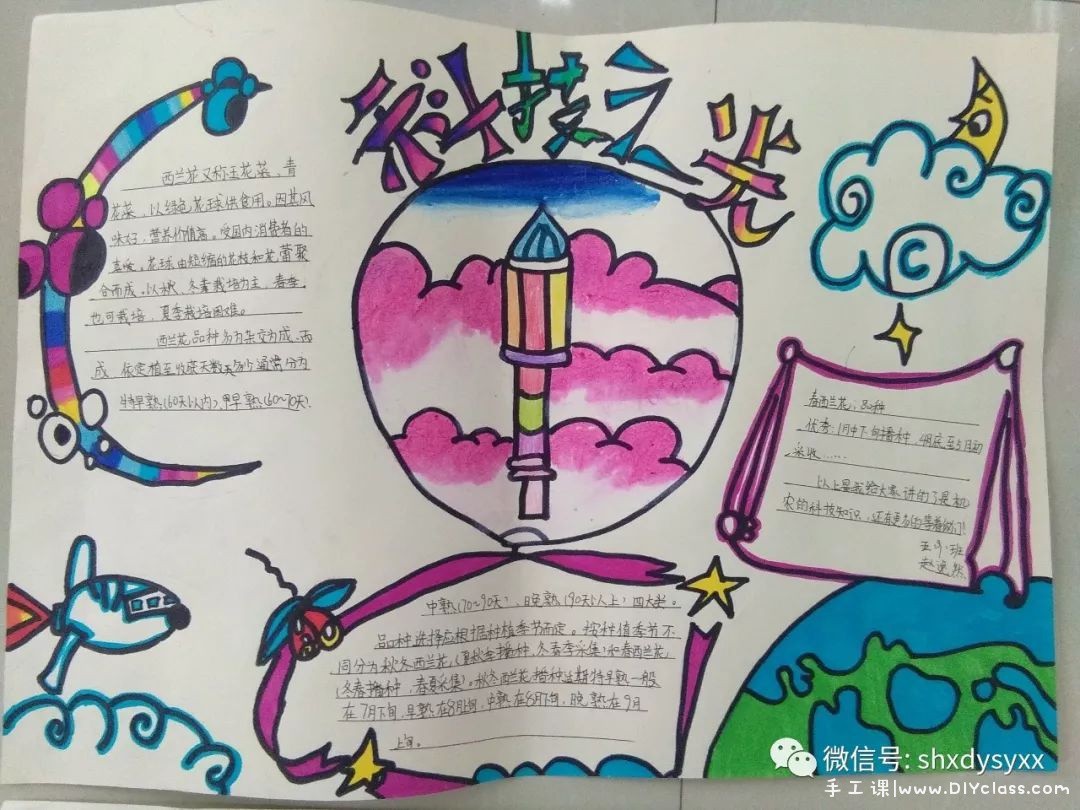 科技之光
西兰花又称王花菜、青
花菜，以绿色花球供食用。因其风
味好，营养价值高。受国内消费者的
喜爱。花球由短缩的花枝和花蕾聚
合而成，以秋、冬季栽培为主，春季
也可栽培，夏季栽培困难。
西兰花品种多为杂交
成，依定植至收获天数 通常分为
特早熟(60天以内)，早熟(60~70天)、
中熟(70~90天)、晚熟(90天以上)四大类。
品种选择应根据种植季节而定。按种值季节不
同分为秋冬西兰花，(夏秋季播种，冬春季采集)和春西兰花，
(冬春播种，春夏采集)。秋冬西兰花播种 特早熟一般
在7月下旬，早熟在8月上旬，中熟在8月下旬，晚熟在9月
上旬。
C
春西兰花：品种
优秀：1月中下旬播种，4月底至5月初
采收……
以上是我给大家讲的
农的科技知识，还有更多的等着你们！
班
赵
微信号: shxdysyxx
手工课|www.DIYclass.com